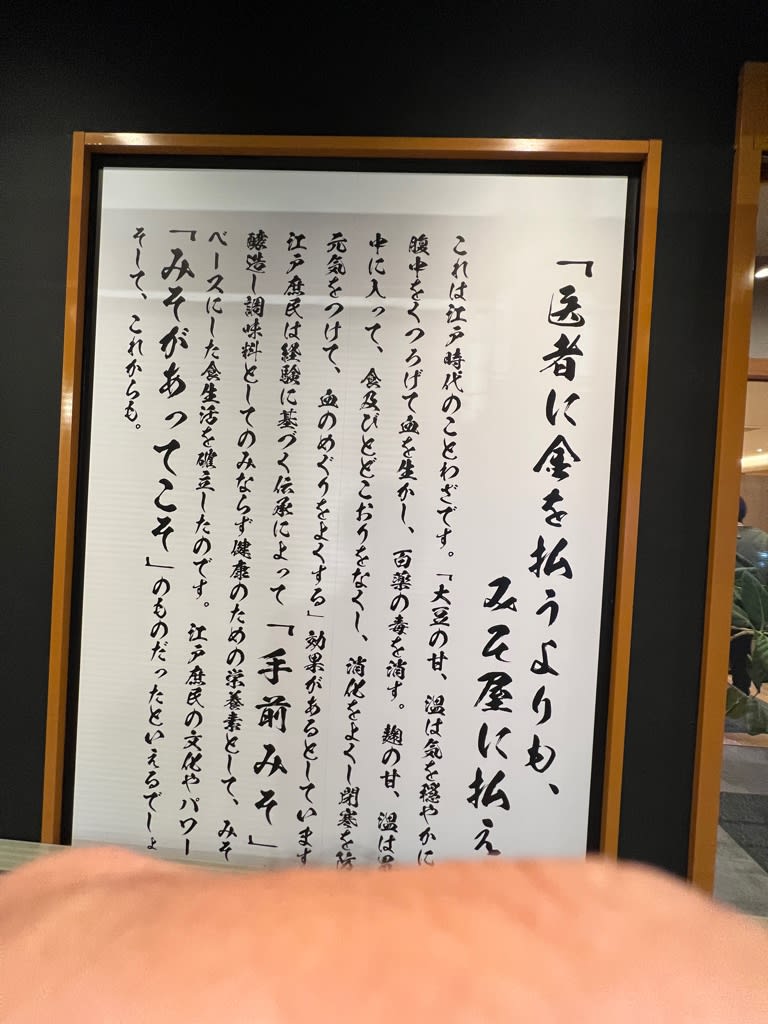 「医者に金を払うよりも、
みそ屋に払え
これは江戸時代のことわざです。「大豆の甘、温は気を穏やかに
腹中をくつろげて血を生かし、百薬の毒を消す。麹の甘、温は
中に入って、食及びとどこおりをなくし、消化をよくし閉塞を防
元気をつけて、血のめぐりをよくする」効果があるとしています
江戸庶民は経験に基づく伝承によって「手前みそ」
醸造し調味料としてのみならず健康のための栄養素として、みそ
ベースにした食生活を確立したのです。江戸庶民の文化やパワー
「みそがあってこそ」のものだったといえるでしょ
そして、これからも。